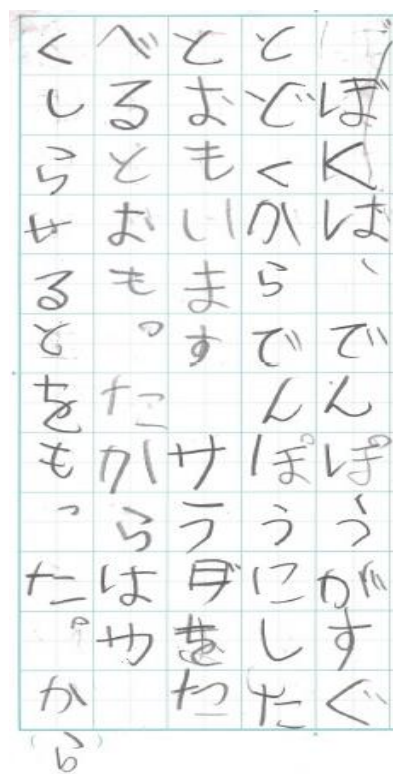 ぼくは、でんぽうがすぐ
とどくからでんぽうにした
とおもいます　サラダをた
べるとおもったからはや
くしらせるとをもった。か
(ら)